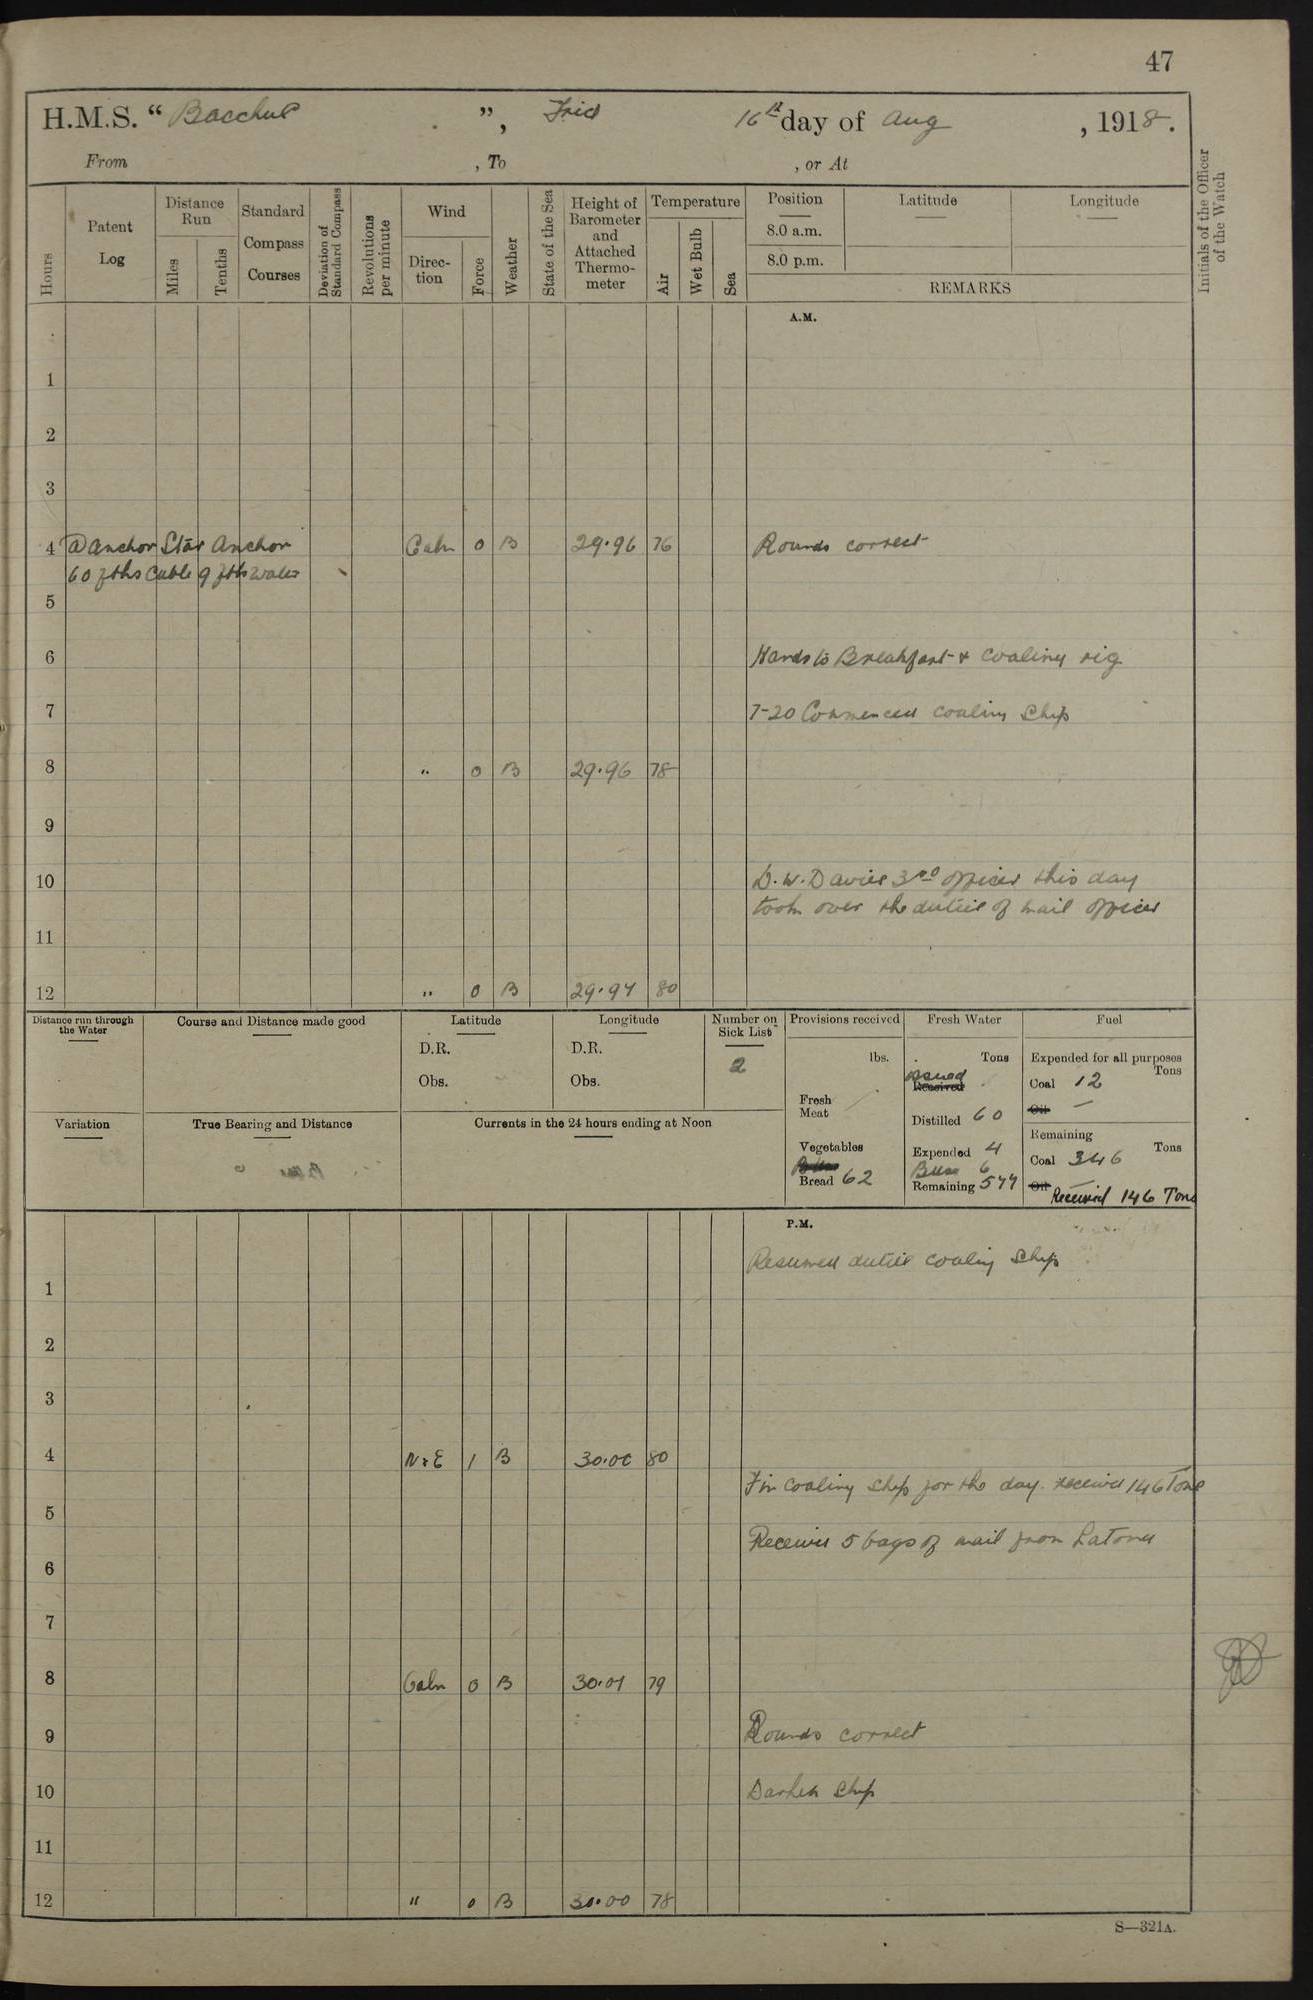 47
H.M.S. “ Bacchus ”, Frid 16th day of Aug , 1918.
From , To , or At
Hours
Patent Log
Distance Run
Miles
Tenths
Standard Compass Courses
Deviation of Standard Compass
Revolutions per minute
Wind
Direc-tion
Force
Weather
State of the Sea
Height of Barometer and Attached Thermo-meter
Temperature
Air
Wet Bulb
Sea
Position
8.0 a.m.
8.0 p.m.
Latitude
Longitude
REMARKS
Initials of the Officer of the Watch
A.M.
1
2
3
4 @ Anchor Star Anchor Calm 0 B 29.96 76 Rounds correct
60 fths Cable 9 fths Water
5
6 Hands to Breakfast & coaling rig
7 7-20 Commenced coaling Ship
8 " 0 B 29.96 78
9
10 D.W. Davies 3rd officer this day
took over the duties of mail officer
11
12 " 0 B 29.97 80
Distance run through the Water
Course and Distance made good
Latitude
D.R.
Obs.
Longitude
D.R.
Obs.
Number on Sick List
2
Provisions received
lbs.
Fresh Meat
Vegetables
Bread 62
Fresh Water
Tons
Issued
Received
Distilled 60
Expended 4
6
Remaining 577
Fuel
Expended for all purposes
Tons
Coal 12
Oil –
Remaining
Tons
Coal 346
Oil –
Received 146 Tons
Variation
True Bearing and Distance
Currents in the 24 hours ending at Noon
P.M.
Resumed duties coaling Ship
1
2
3
4 N x E 1 B 30.00 80
Fin coaling ship for the day. received 146 Tons
5
Received 5 bags of mail from Latona
6
7
8 Calm 0 B 30.01 79
9 Rounds correct
10 Darken Ship
11
12 " 0 B 30.00 78
S—321A.